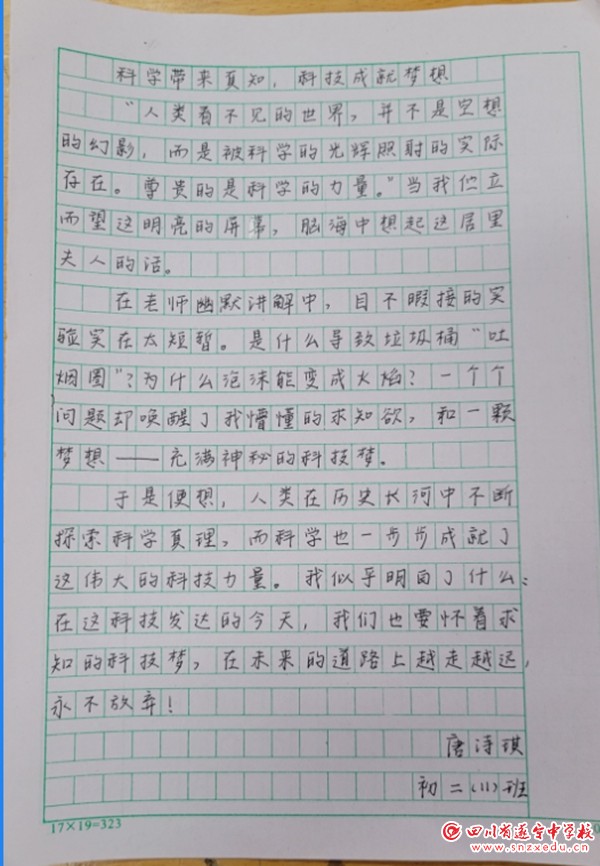 科学带来真知，科技成就梦想
“人类看不见的世界，并不是空想
的幻影，而是被科学的光辉照射的实际
存在。尊贵的是科学的力量。”当我伫立
而望这明亮的屏幕，脑海中想起这居里
夫人的话。
在老师幽默讲解中，目不暇接的实
验实在太短暂。是什么导致垃圾桶“吐
烟圈”？为什么泡沫能变成火焰？一个个
问题却唤醒了我懵懂的求知欲，和一颗
梦想——充满神秘的科技梦。
于是便想，人类在历史长河中不断
探索科学真理，而科学也一步步成就了
这伟大的科技力量。我似乎明白了什么：
在这科技发达的今天，我们也要怀着求
知的科技梦，在未来的道路上越走越远，
永不放弃！
唐诗琪
初二（11）班
17×19=323
四川省遂宁中学校
www.snzxedu.cn